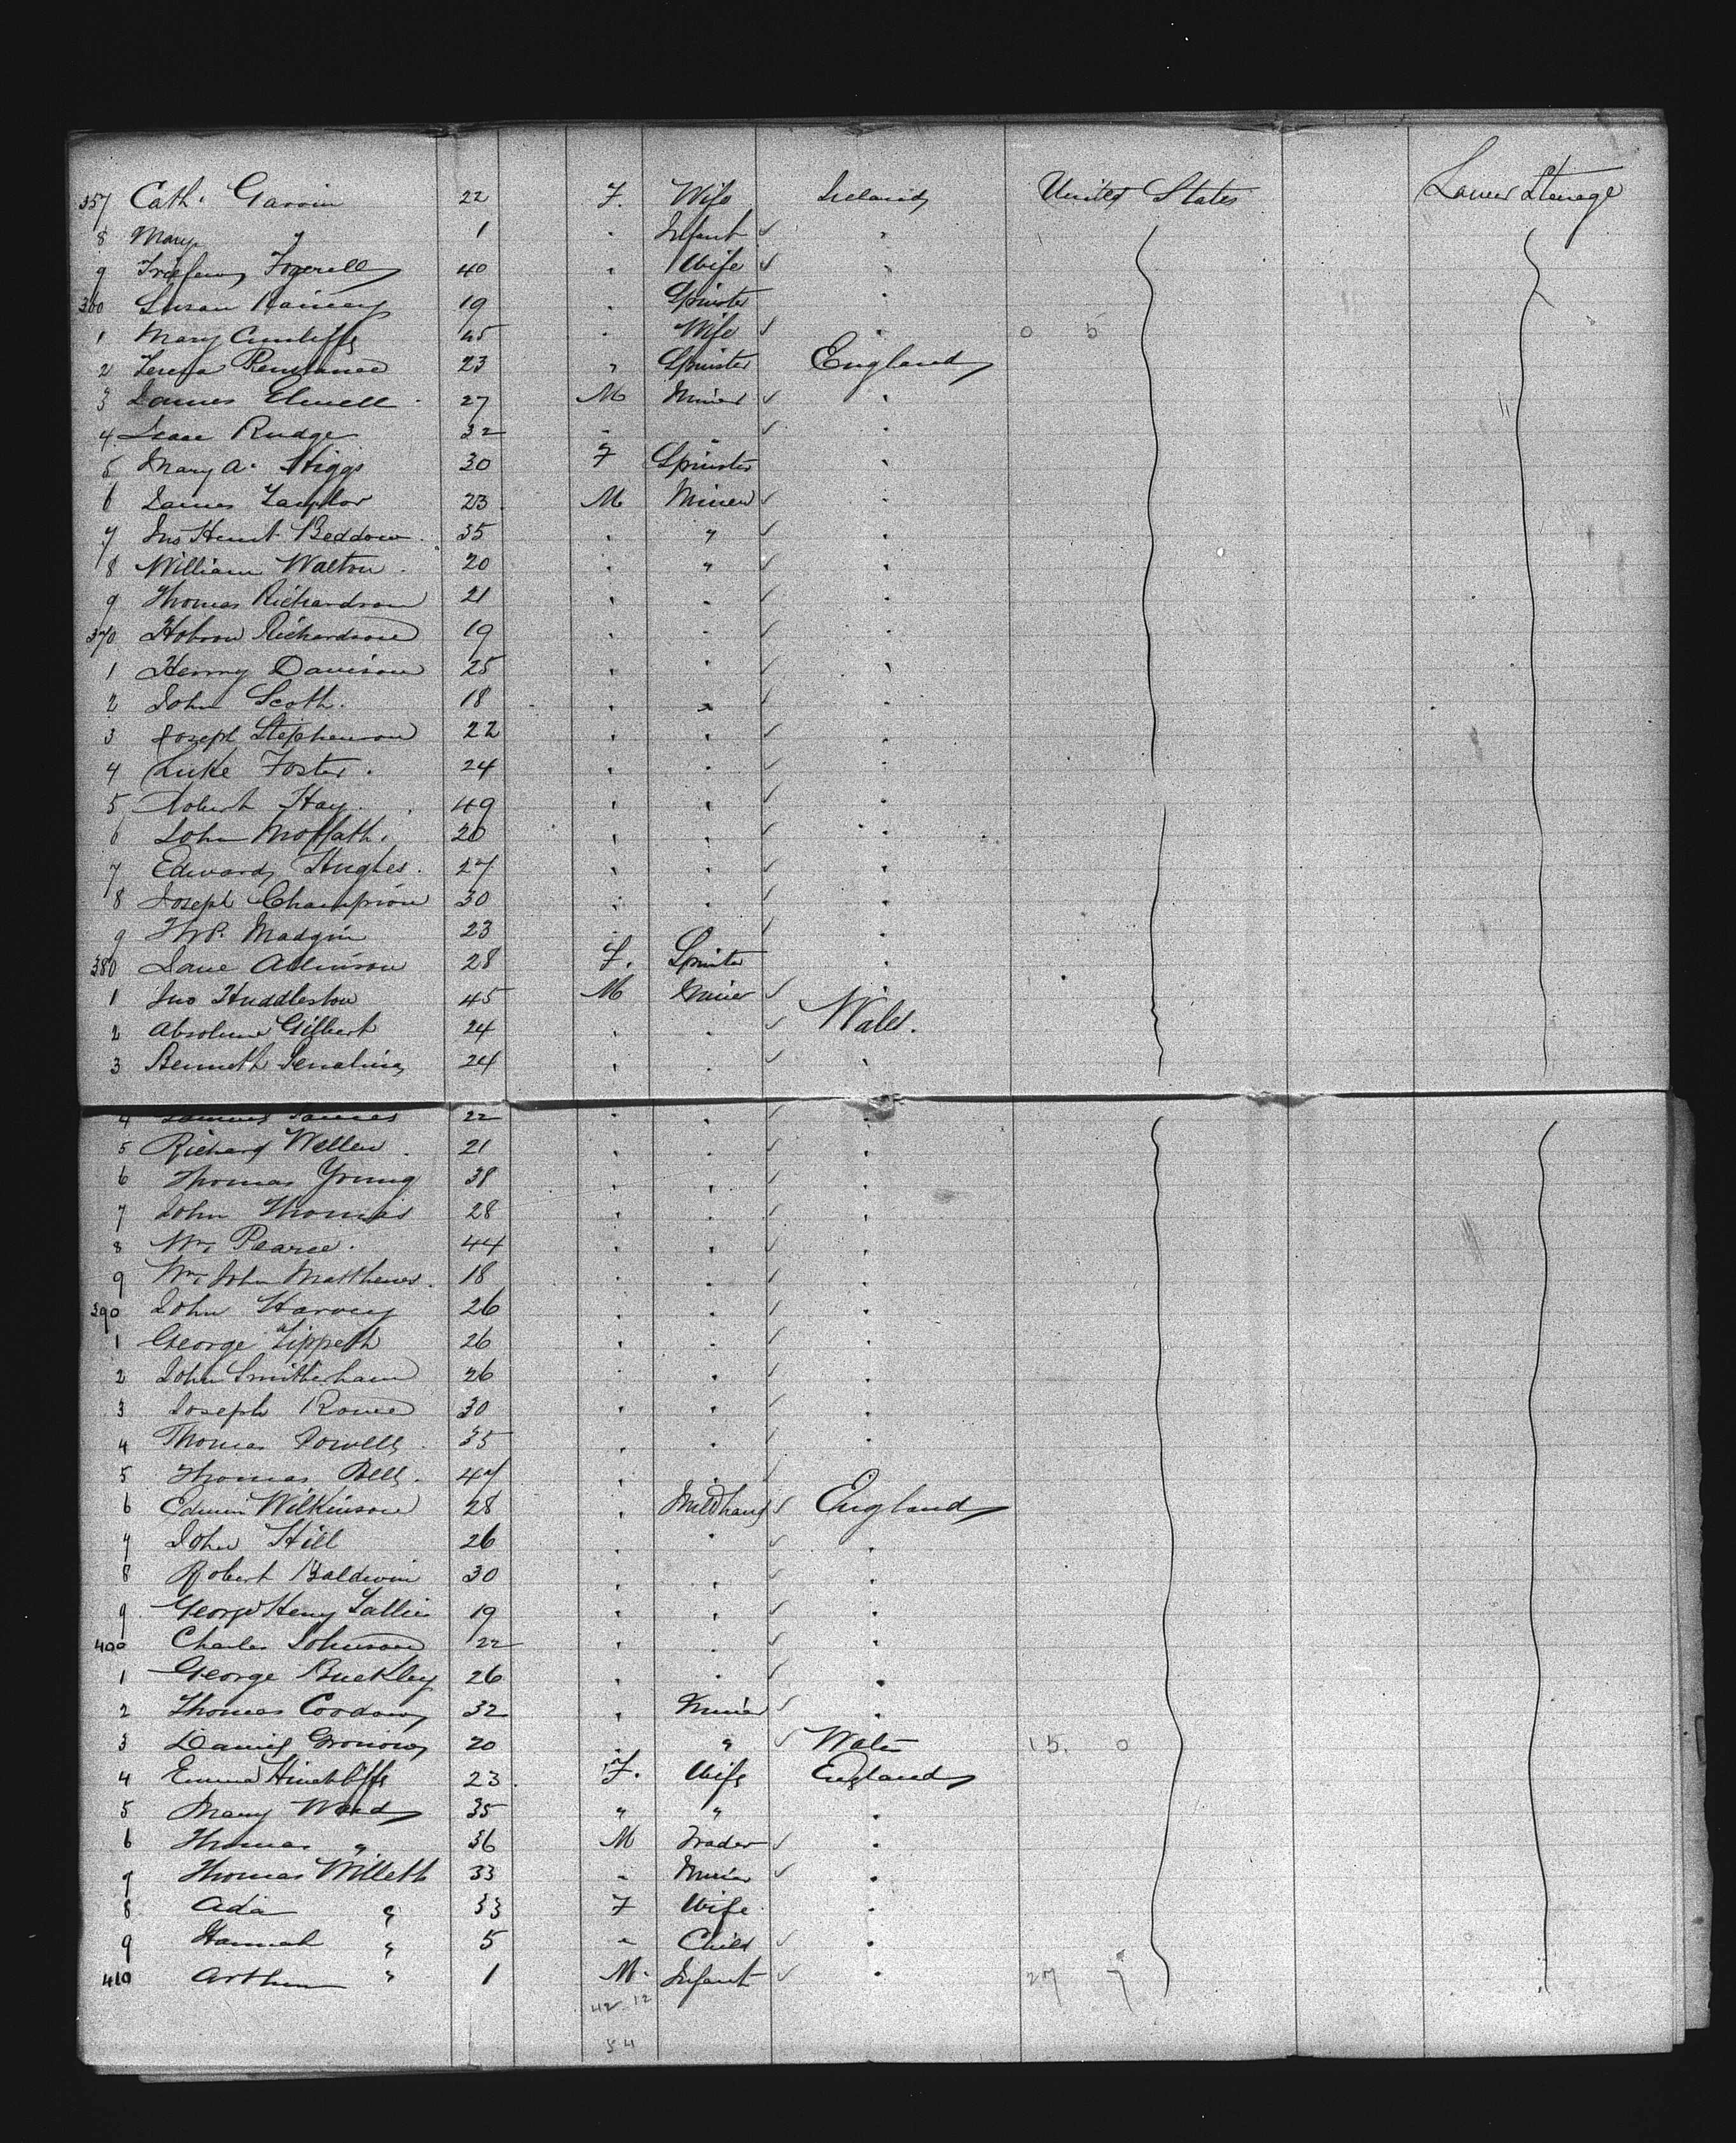 357 Cath. Garvin 22 F. Wife Ireland United States Lower Steerage
8 Mary " 1 " Infant ✓ "
9 Fogerell 40 " Wife ✓ "
360 Susan Rainey 19 " Spinster "
1 Mary Cunliffe 45 " Wife ✓ " 0 5
2 Teresa 23 " Spinster England
3 James Elwell 27 M Miner ✓ "
4 Isaac Rudge 32 " " ✓ "
5 Mary A. Higgs 30 F Spinster "
6 James Taylor 23 M Miner ✓ "
7 Jno Hunt Beddow 35 " " ✓ "
8 William Walton 20 " " ✓ "
9 Thomas Richardson 21 " " ✓ "
370 Hobson Richardson 19 " " ✓ "
1 Henry Davison 25 " " ✓ "
2 John Scott. 18 " " ✓ "
3 Joseph Stephenson 22 " " ✓ "
4 Luke Foster. 24 " " ✓ "
5 Robert Hay. 49 " " ✓ "
6 John Moffatt. 20 " " ✓ "
7 Edward Hughes. 27 " " ✓ "
8 Joseph Champion 30 " " ✓ "
9 Madgin 23 " " ✓ "
380 Jane Atkinson 28 F. Spinster "
1 Jno Huddleston 45 M Miner ✓ "
2 Absolum Gilbert 24 " " ✓ Wales.
3 Bennett 24 " " ✓ "
4 James 22 " " ✓ "
5 Richard Wellen 21 " " ✓ "
6 Thomas Young 38 " " ✓ "
7 John Thomas 28 " " ✓ "
8 Wm. Pearce. 44 " " ✓ "
9 Wm. John Matthews. 18 " " ✓ "
390 John Harvey 26 " " ✓ "
1 George Tippett 26 " " ✓ "
2 John Smitherham 26 " " ✓ "
3 Joseph Rowe 30 " " ✓ "
4 Thomas Powell 35 " " ✓ "
5 Thomas Bell. 47 " " ✓ "
6 Edwin Wilkinson 28 " Millhand ✓ England
7 John Hill 26 " " ✓ "
8 Robert Baldwin 30 " " ✓ "
9 George Henry 19 " " ✓ "
400 Charles Johnson 22 " " ✓ "
1 George Buckley 26 " " ✓ "
2 Thomas 32 " Miner ✓ "
3 Daniel Gronow 20 " " ✓ Wales 15. 0
4 Emma Hinchliffe 23 F. Wife England
5 Mary Ward 35 " " "
6 Thomas " 36 M Trader ✓ "
7 Thomas Willett 33 " Miner ✓ "
8 Ada " 33 F Wife "
9 Hannah " 5 " Child ✓ "
410 Arthur " 1 M. Infant ✓ " 27 7
42 12
54